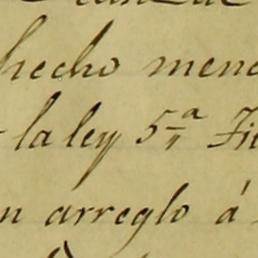 hecho menc
la ley 5ª Ti
n arreglo á